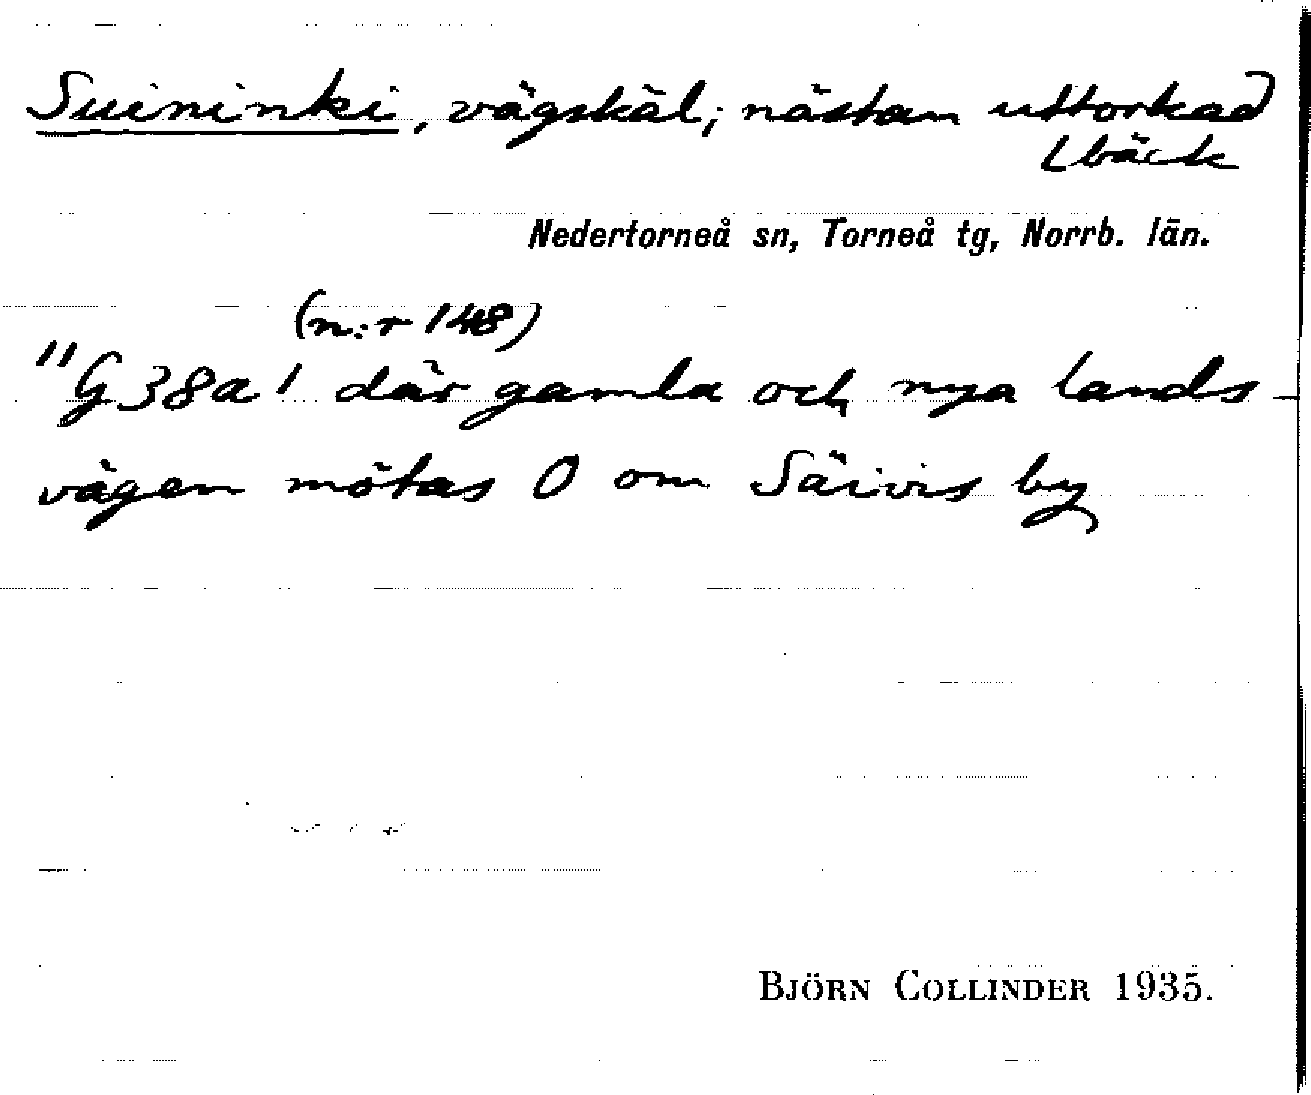 Suininki, vägskäl; nästan uttorkad
bäck
Nedertorneå sn, Torneå tg, Norrb. län.
(n:r 148)
"G 38a1 där gamla och nya lands-
vägen mötas O om Säivis by
BJÖRN COLLINDER 1935.